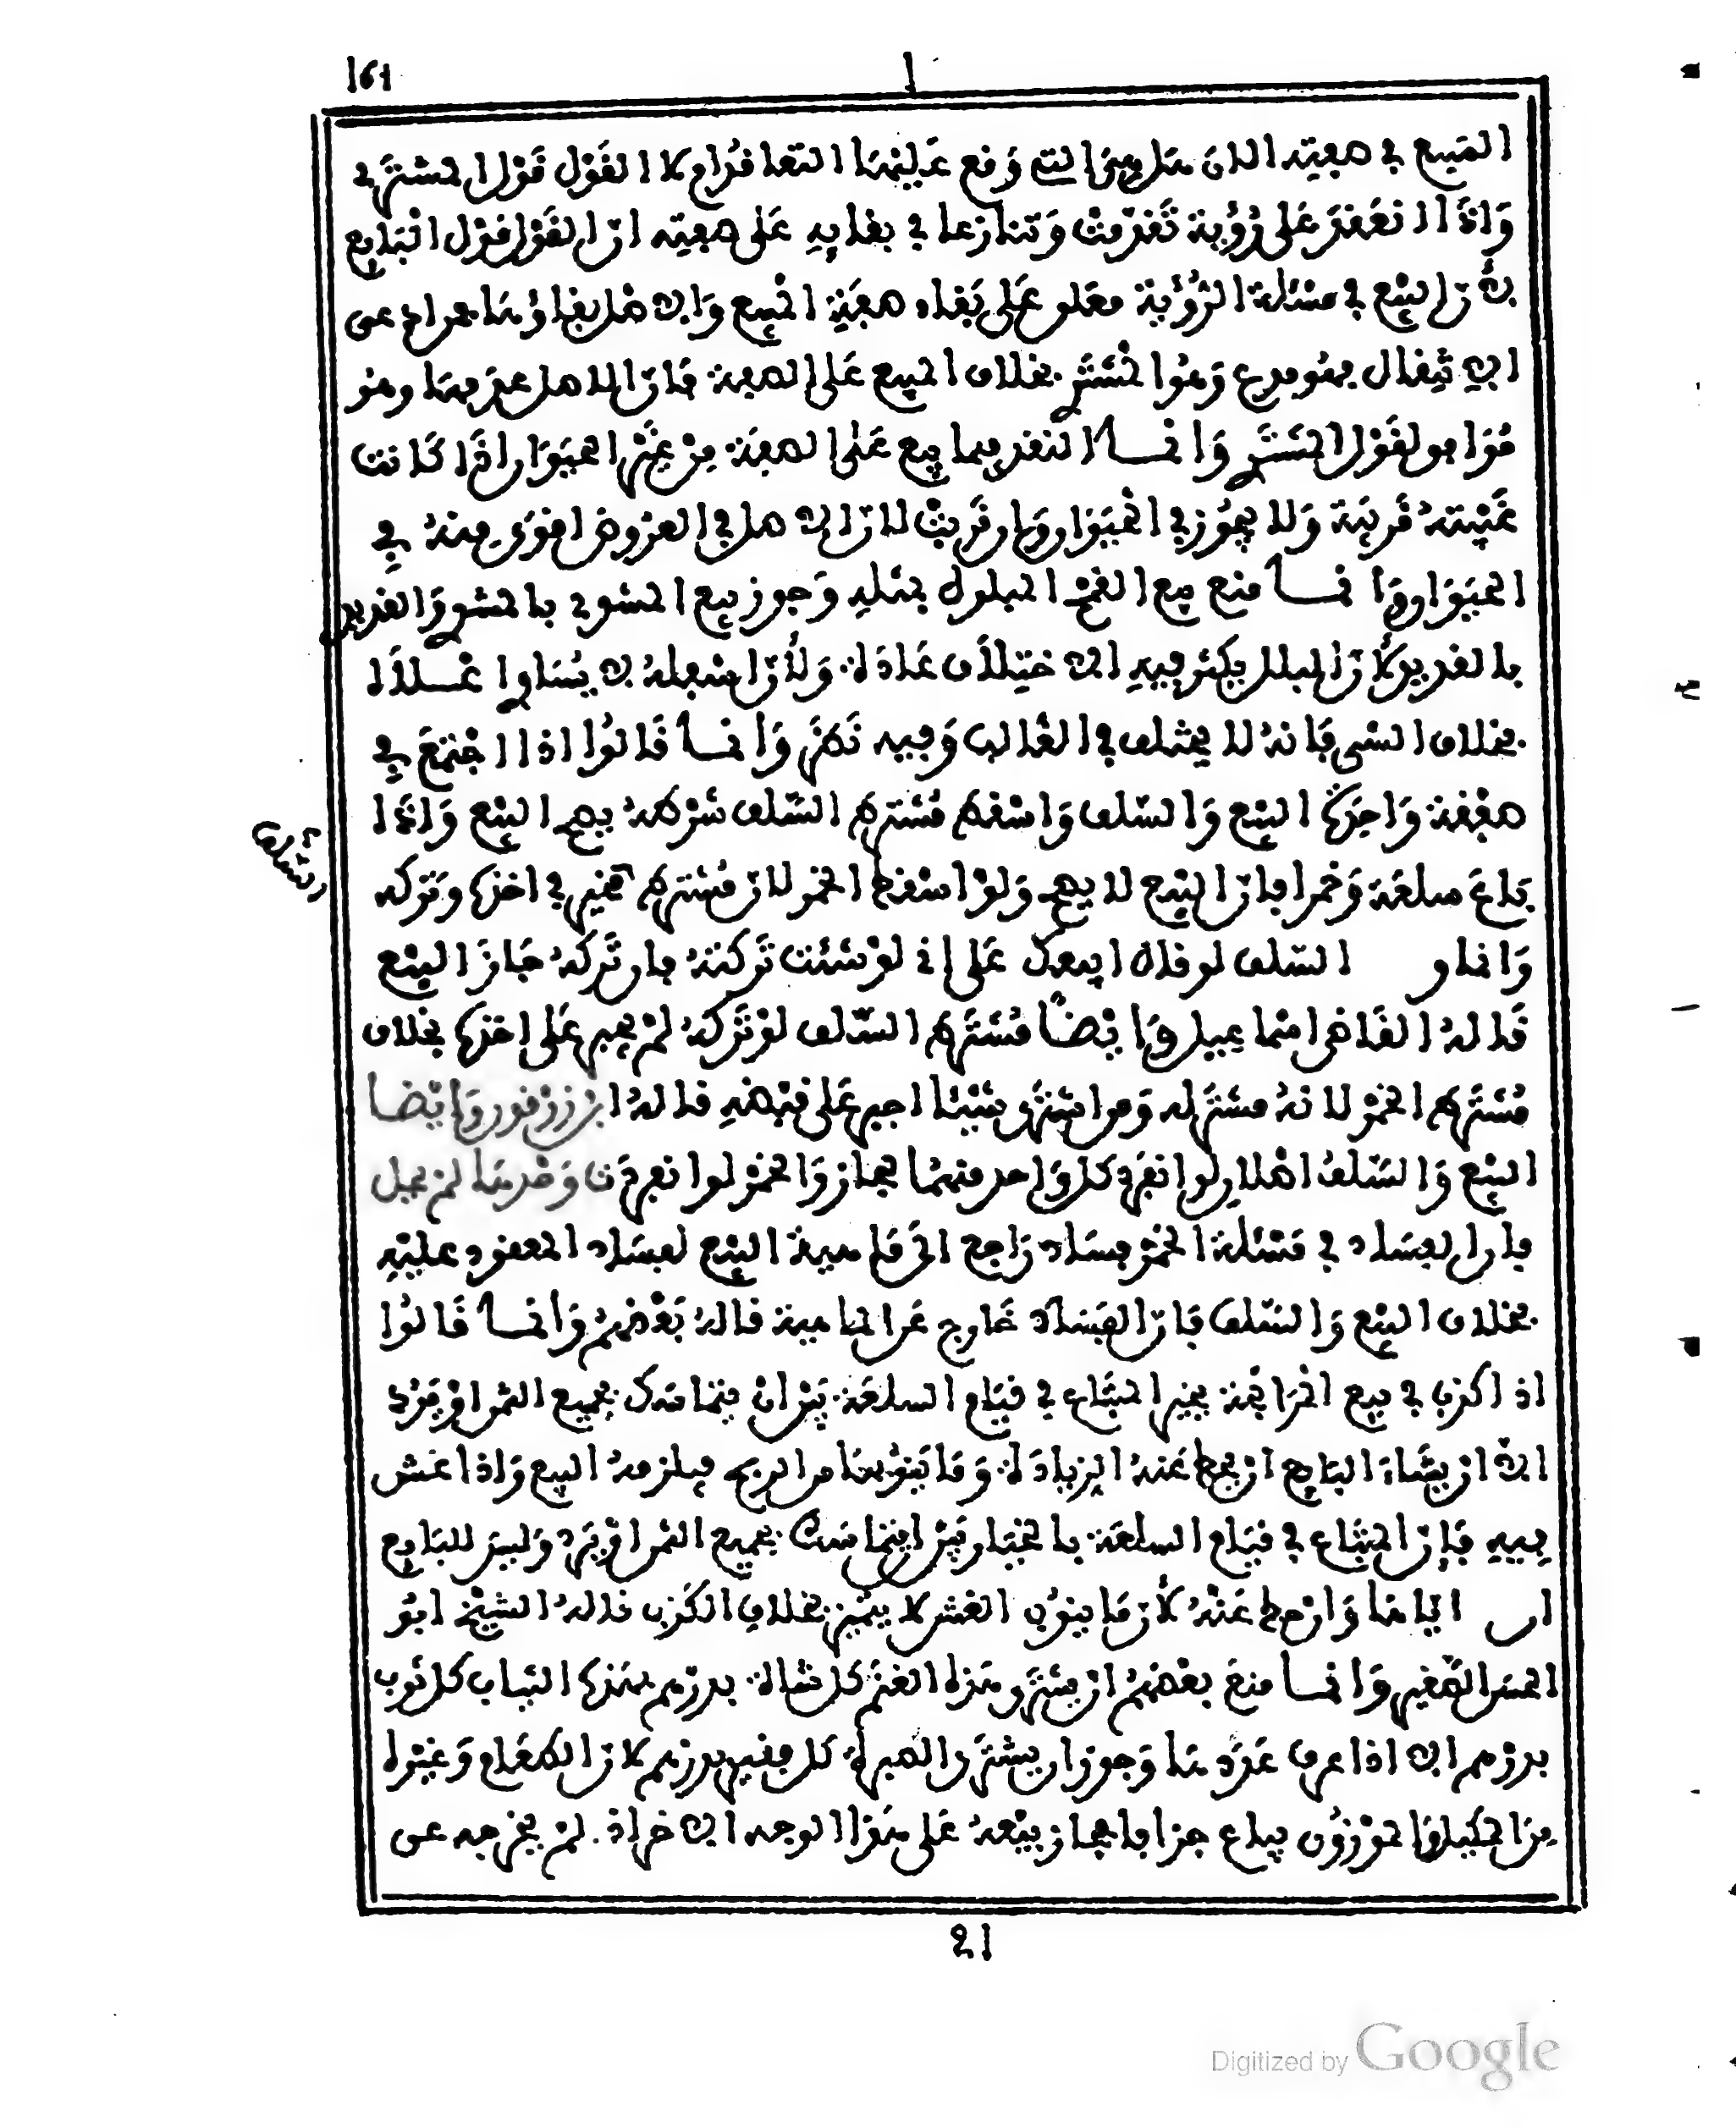 161
المبيع في صفته الان هل هي التي وقع عليها التعاقد ام لا القول قول المشتري
وإذا انعقد على رؤية تقدمت وتنازعا في بقائه على صفته ان القول قول البايع
لان البيع في مسئلة الرؤية معلق على بقاء صفة المبيع والاصل بقاؤها فمن ادعى
الانتقال فهو مدع وهو المشتري بخلاف المبيع على الصفة فان الاصل عدمها وهو
موافق لقول المشتري وإنما النقد فيما بيع على الصفة من غير الحيوان إذا كانت
غيبته قريبة ولا يجوز في الحيوان وإن قربت لان الامن في العروض اقوى منه في
الحيوان وإنما منع بيع القمح المبلول بمثله وجوز بيع المشوي بالمشوي والقديد
بالقديد لأن البلل يكثر فيه الاختلاف عادة ولأن اسفله لا يساوي اعلاه
بخلاف الشي فانه لا يختلف في الغالب وفيه نظر وإنما قالوا اذا اجتمع في
صفقة واحدة البيع والسلف واسقط مشترط السلف شرطه يصح البيع وإذا
باع سلعة وخمرا فان البيع لا يصح ولو اسقط الخمر لان مشترط السلف مخير في اخذه وتركه
وانما السلف لو قال ابيعك على اني لو شئت تركته فان تركه جاز البيع
قاله القاضي اسماعيل وأيضا مشترط السلف لو تركه لم يجبر على اخذه بخلاف
مشترط الخمر لانه مشتر له ومن اشترى شيئا اجبر على قبضه قاله ابن زرقون وأيضا
البيع والسلف اصلان لو انفرد كل واحد منهما لجاز والخمر لو انفردت وحدها لم يحل
فان الفساد في مسئلة الخمر فساد راجع الى ماهية البيع لفساد المعقود عليه
بخلاف البيع والسلف فان الفساد خارج عن الماهية قاله بعضهم وإنما قالوا
اذا كذب في بيع المرابحة يخير المبتاع في قيام السلعة بين ان يتماسك بجميع الثمن او يرد
الا ان يشاء البايع ان يحط عنه الزيادة وما ينوبها من الربح فيلزمه البيع وإذا غش
فيه فإن المبتاع في قيام السلعة بالخيار بين ان يتماسك بجميع الثمن او يرد وليس للبايع
ان يلزمه اياها وان حط عنه لأن ما ينوب الغش لا يتميز بخلاف الكذب قاله الشيخ ابو
الحسن الصغير وإنما منع بعضهم ان يشتري هذه الغنم كل شاة بدرهم هذه الثياب كل ثوب
بدرهم الا اذا عرف عددها وجوز ان يشتري الصبرة كل قفيز بدرهم لان الطعام وغيره
من المكيل والموزون يباع جزافا فجاز بيعه على هذا الوجه الا خر اذ لم يخرجه عن
21
Digitized by Google